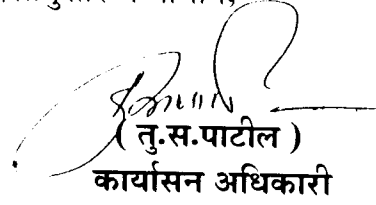 ( तु.स.पाटील )
कार्यासन अधिकारी